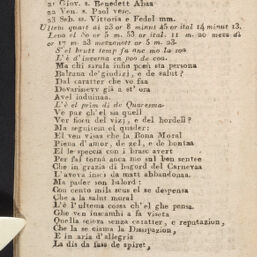 21 Giov. s. Benedett Abaa
22 Ven. s. Paol vesc.
23 Sab. ss Vittoria e Fedel mm.
Ultem quart ai 23 or 8 minut 45 or ital 14 minut 13.
Leva el So or 5 m. 53 or ital. 11 m. 20 mezz dì
or 17 m. 23 mezzanott or 5 m. 23.
S'el brutt temp fa anc mo la soa
L'è d'inverna en poo de coa.
Ma chi sarala mihn poch sta persona
Baltana de'giudizi, e de salut?
Dal caratter che vo faa
Dovarissev già a st'ora
Avel indovinaa.
L'è el prim dì de Quaresma
Ve par ch'el sia quell
Ver fioeu del vizi, e del bordell?
Ma seguitem el quader:
El ven visaa che la Bona Moral
Piena d'amor, de zel, e de bontaa
El le speccia coi brasc avert
Per fai tornà anca mo sul ben sentee
Che in grazia di bagord del Carnevaa
L'aveva inscì da matt abbandonaa.
Ma pader son balord:
Con cento mila scus el se despensa
Che a la salut moral
L'è l'ultema cossa ch'el ghe pensa.
Ghe ven inscambi a fa viseta
Quella sgioza senza caratter, e reputazion,
Che la se ciama la Dissipazion,
E in aria d'allegria
La dis da fass de spiret,